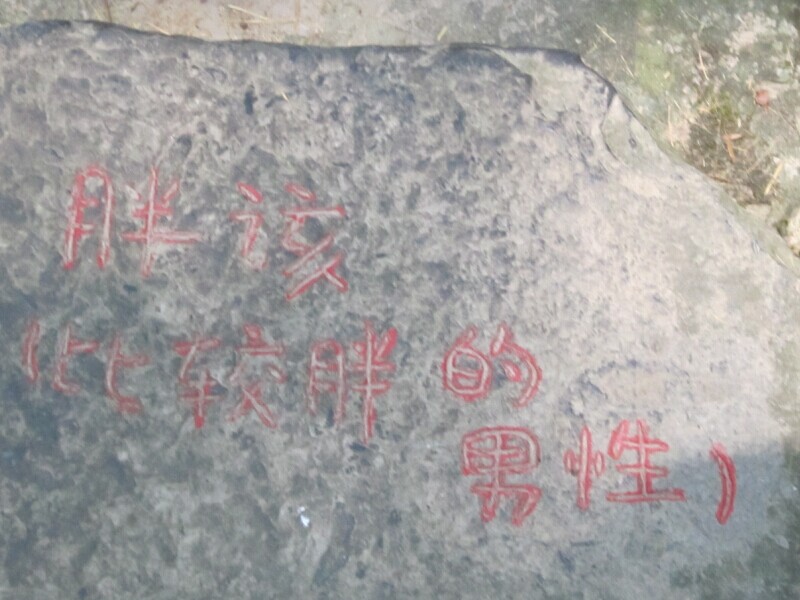 胖该
(比较胖的
男性)